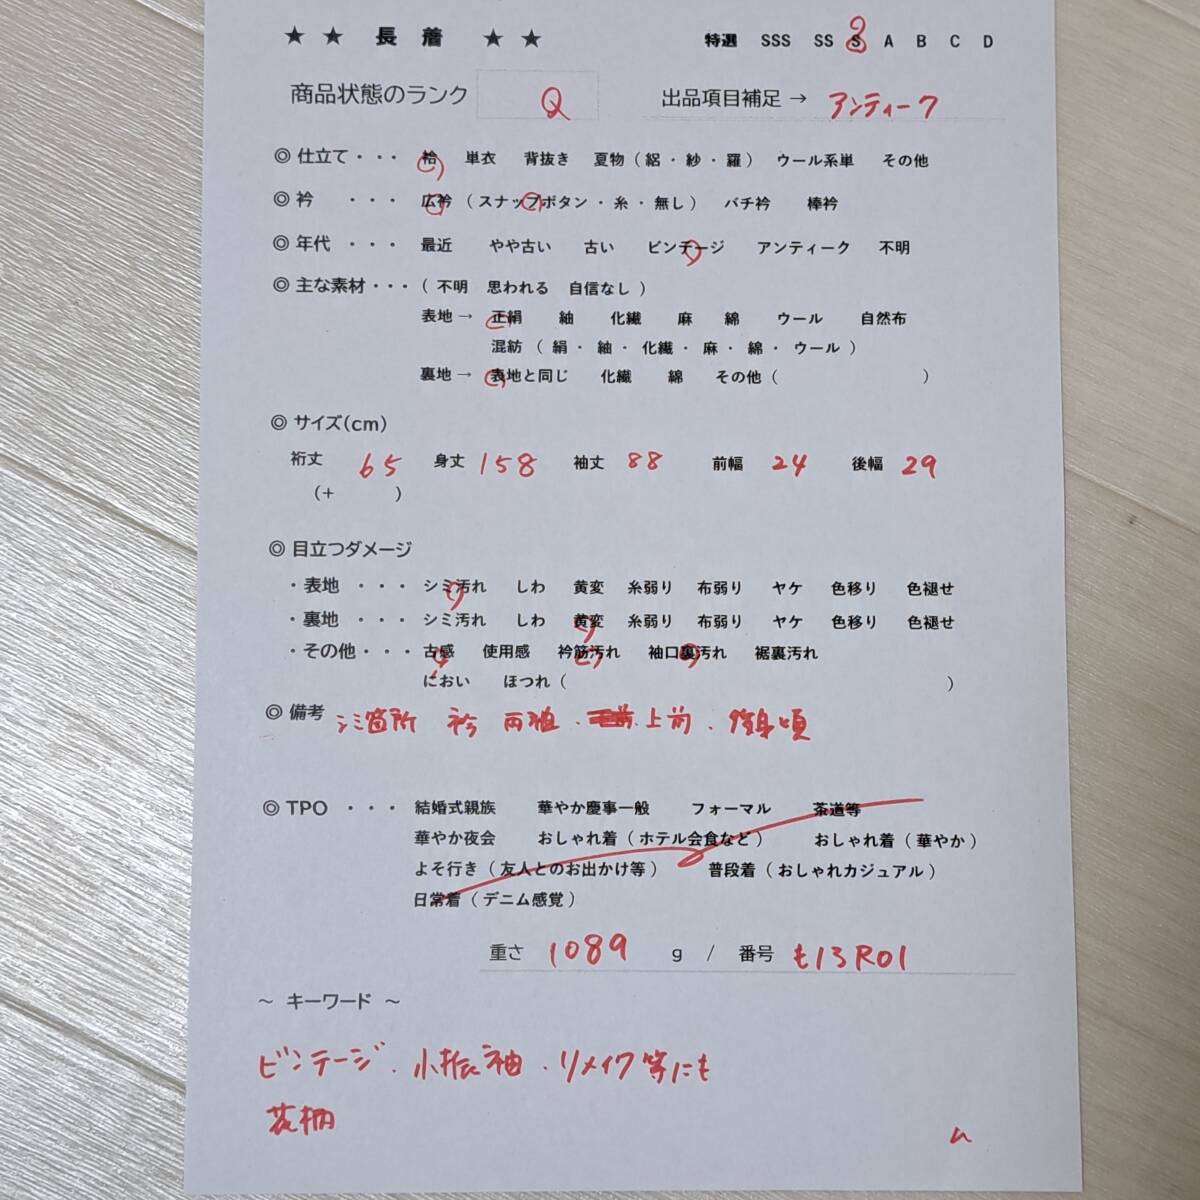 ★ ★ 長 着 ★ ★ 特選 SSS SS S A B C D
商品状態のランク Q 出品項目補足 → アンティーク
◎ 仕立て・・・ 袷 単衣 背抜き 夏物（絽・紗・羅） ウール系単 その他
◎ 衿 ・・・ 広衿（スナップボタン・糸・無し） バチ衿 棒衿
◎ 年代 ・・・ 最近 やや古い 古い ビンテージ アンティーク 不明
◎ 主な素材・・・（ 不明 思われる 自信なし ）
表地→ 正絹 紬 化繊 麻 綿 ウール 自然布
混紡（ 絹・紬・化繊・麻・綿・ウール ）
裏地→ 表地と同じ 化繊 綿 その他（ ）
◎ サイズ(cm)
裄丈 65 身丈 158 袖丈 88 前幅 24 後幅 29
（+ ）
◎ 目立つダメージ
・表地 ・・・ シミ汚れ しわ 黄変 糸弱り 布弱り ヤケ 色移り 色褪せ
・裏地 ・・・ シミ汚れ しわ 黄変 糸弱り 布弱り ヤケ 色移り 色褪せ
・その他・・・ 古感 使用感 衿筋汚れ 袖口裏汚れ 裾裏汚れ
におい ほつれ（ ）
◎ 備考 シミ箇所 衿 両袖・上前・後身頃
◎ TPO ・・・ 結婚式親族 華やか慶事一般 フォーマル 茶道等
華やか夜会 おしゃれ着（ホテル会食など） おしゃれ着（華やか）
よそ行き（友人とのお出かけ等） 普段着（おしゃれカジュアル）
日常着（デニム感覚）
重さ 1089 g / 番号 も13R01
～ キーワード ～
ビンテージ・小振袖・リメイク等にも
花柄
ム